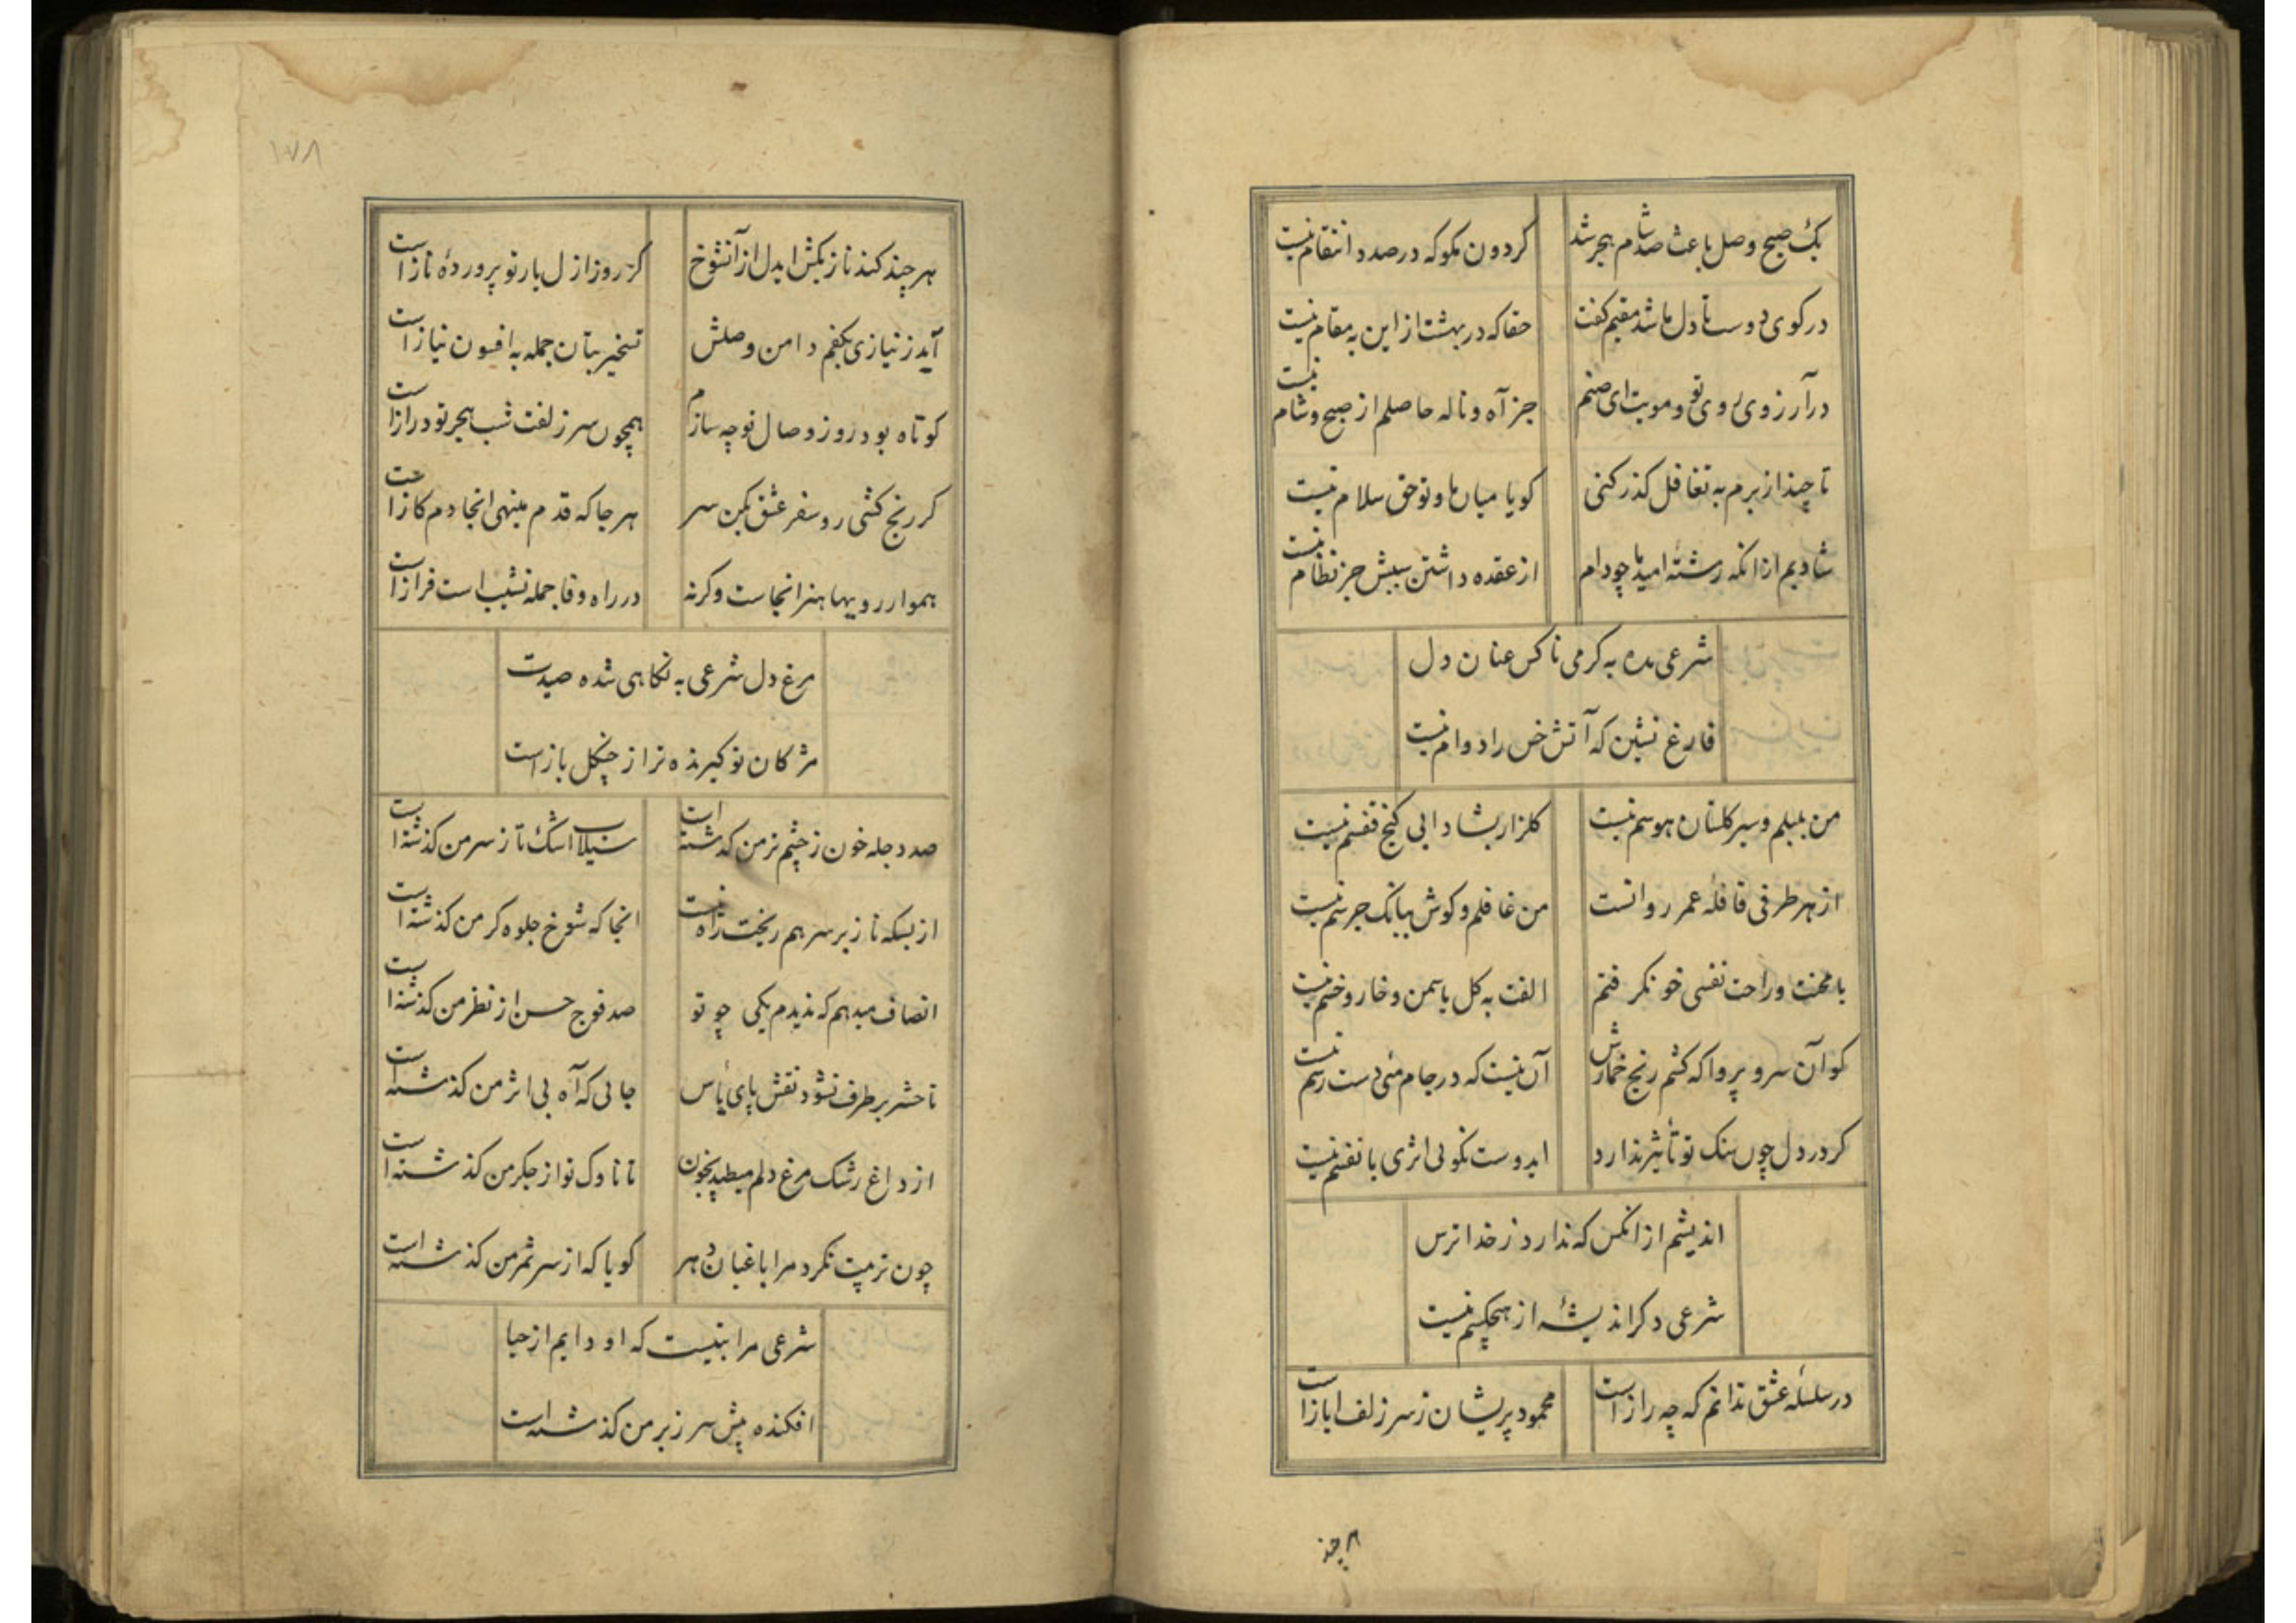 یک صبح وصل باعث صد شام هجر شد
کردون مکو که در صدد انتقام نیست
در کوی دوست تا دل ما شد مقیم کفت
حقا که در بهشت از این به مقام نیست
در آرزوی روی تو و مویت ای صنم
جز آه و ناله حاصلم از صبح و شام نیست
تا چند از برم به تغافل کذر کنی
کویا میان ما و تو حق سلام نیست
شادیم از انکه رشتهٔ امید ما چو دام
از عقده داشتن سببش جز نظام نیست
شرعی مده به کرمی ناکس عنان دل
فارغ نشین که آتش خس را دوام نیست
من بلبلم و سیر کلستان هوسم نیست
کلزار بشادابی کنج قفسم نیست
از هر طرفی قافلهٔ عمر روانست
من غافلم و کوش ببانک جرسم نیست
با محنت و راحت نفسی خو نکرفتم
الفت به کل یاسمن و خار و خسم نیست
کو آن سر و پروا که کشم رنج خمارش
آن نیست که در جام می دست رسم نیست
کر در دل چون سنک تو تأثیر ندارد
ایدوست نکو بی اثری با نفسم نیست
اندیشم از انکس که ندارد ز خدا ترس
شرعی دکر اندیشه از هیچکسم نیست
در سلسلهٔ عشق ندانم که چه راز است
محمود پریشان ز سر زلف ایاز است
هر چند
۱۷۸
هر چند کند ناز بکش ایدل از آنشوخ
کز روز ازل یار تو پروردهٔ ناز است
آید ز نیازی بکفم دامن وصلش
تسخیر بتان جمله به افسون نیاز است
کوتاه بود روز وصال تو چه سازم
همچون سر زلفت شب هجر تو دراز است
کر رنج کشی رو سفر عشق کن سر
هر جا که قدم مینهی انجا دم کاز است
هموار رویها هنر انجاست وکرنه
در راه وفا جمله نشیب است فراز است
مرغ دل شرعی به نکاهی شده صیدت
مژکان تو کیرنده تر از چنکل باز است
صد دجله خون ز چشم تر من کذشته است
سیلاب اشک تا ز سر من کذشته است
از بسکه ناز بر سر هم ریخت راه نیست
انجا که شوخ جلوه کر من کذشته است
انصاف میدهم که ندیدم یکی چو تو
صد فوج حسن از نظر من کذشته است
تا حشر بر طرف نشود نقش پای یأس
جائی که آه بی اثر من کذشته است
از داغ رشک مرغ دلم میطپد بخون
تا ناوک تو از جکر من کذشته است
چون تربیت نکرد مرا باغبان دهر
کویا که از سر ثمر من کذشته است
شرعی مرا بتیست که او دایم از حیا
افکنده پیش سر ز بر من کذشته است